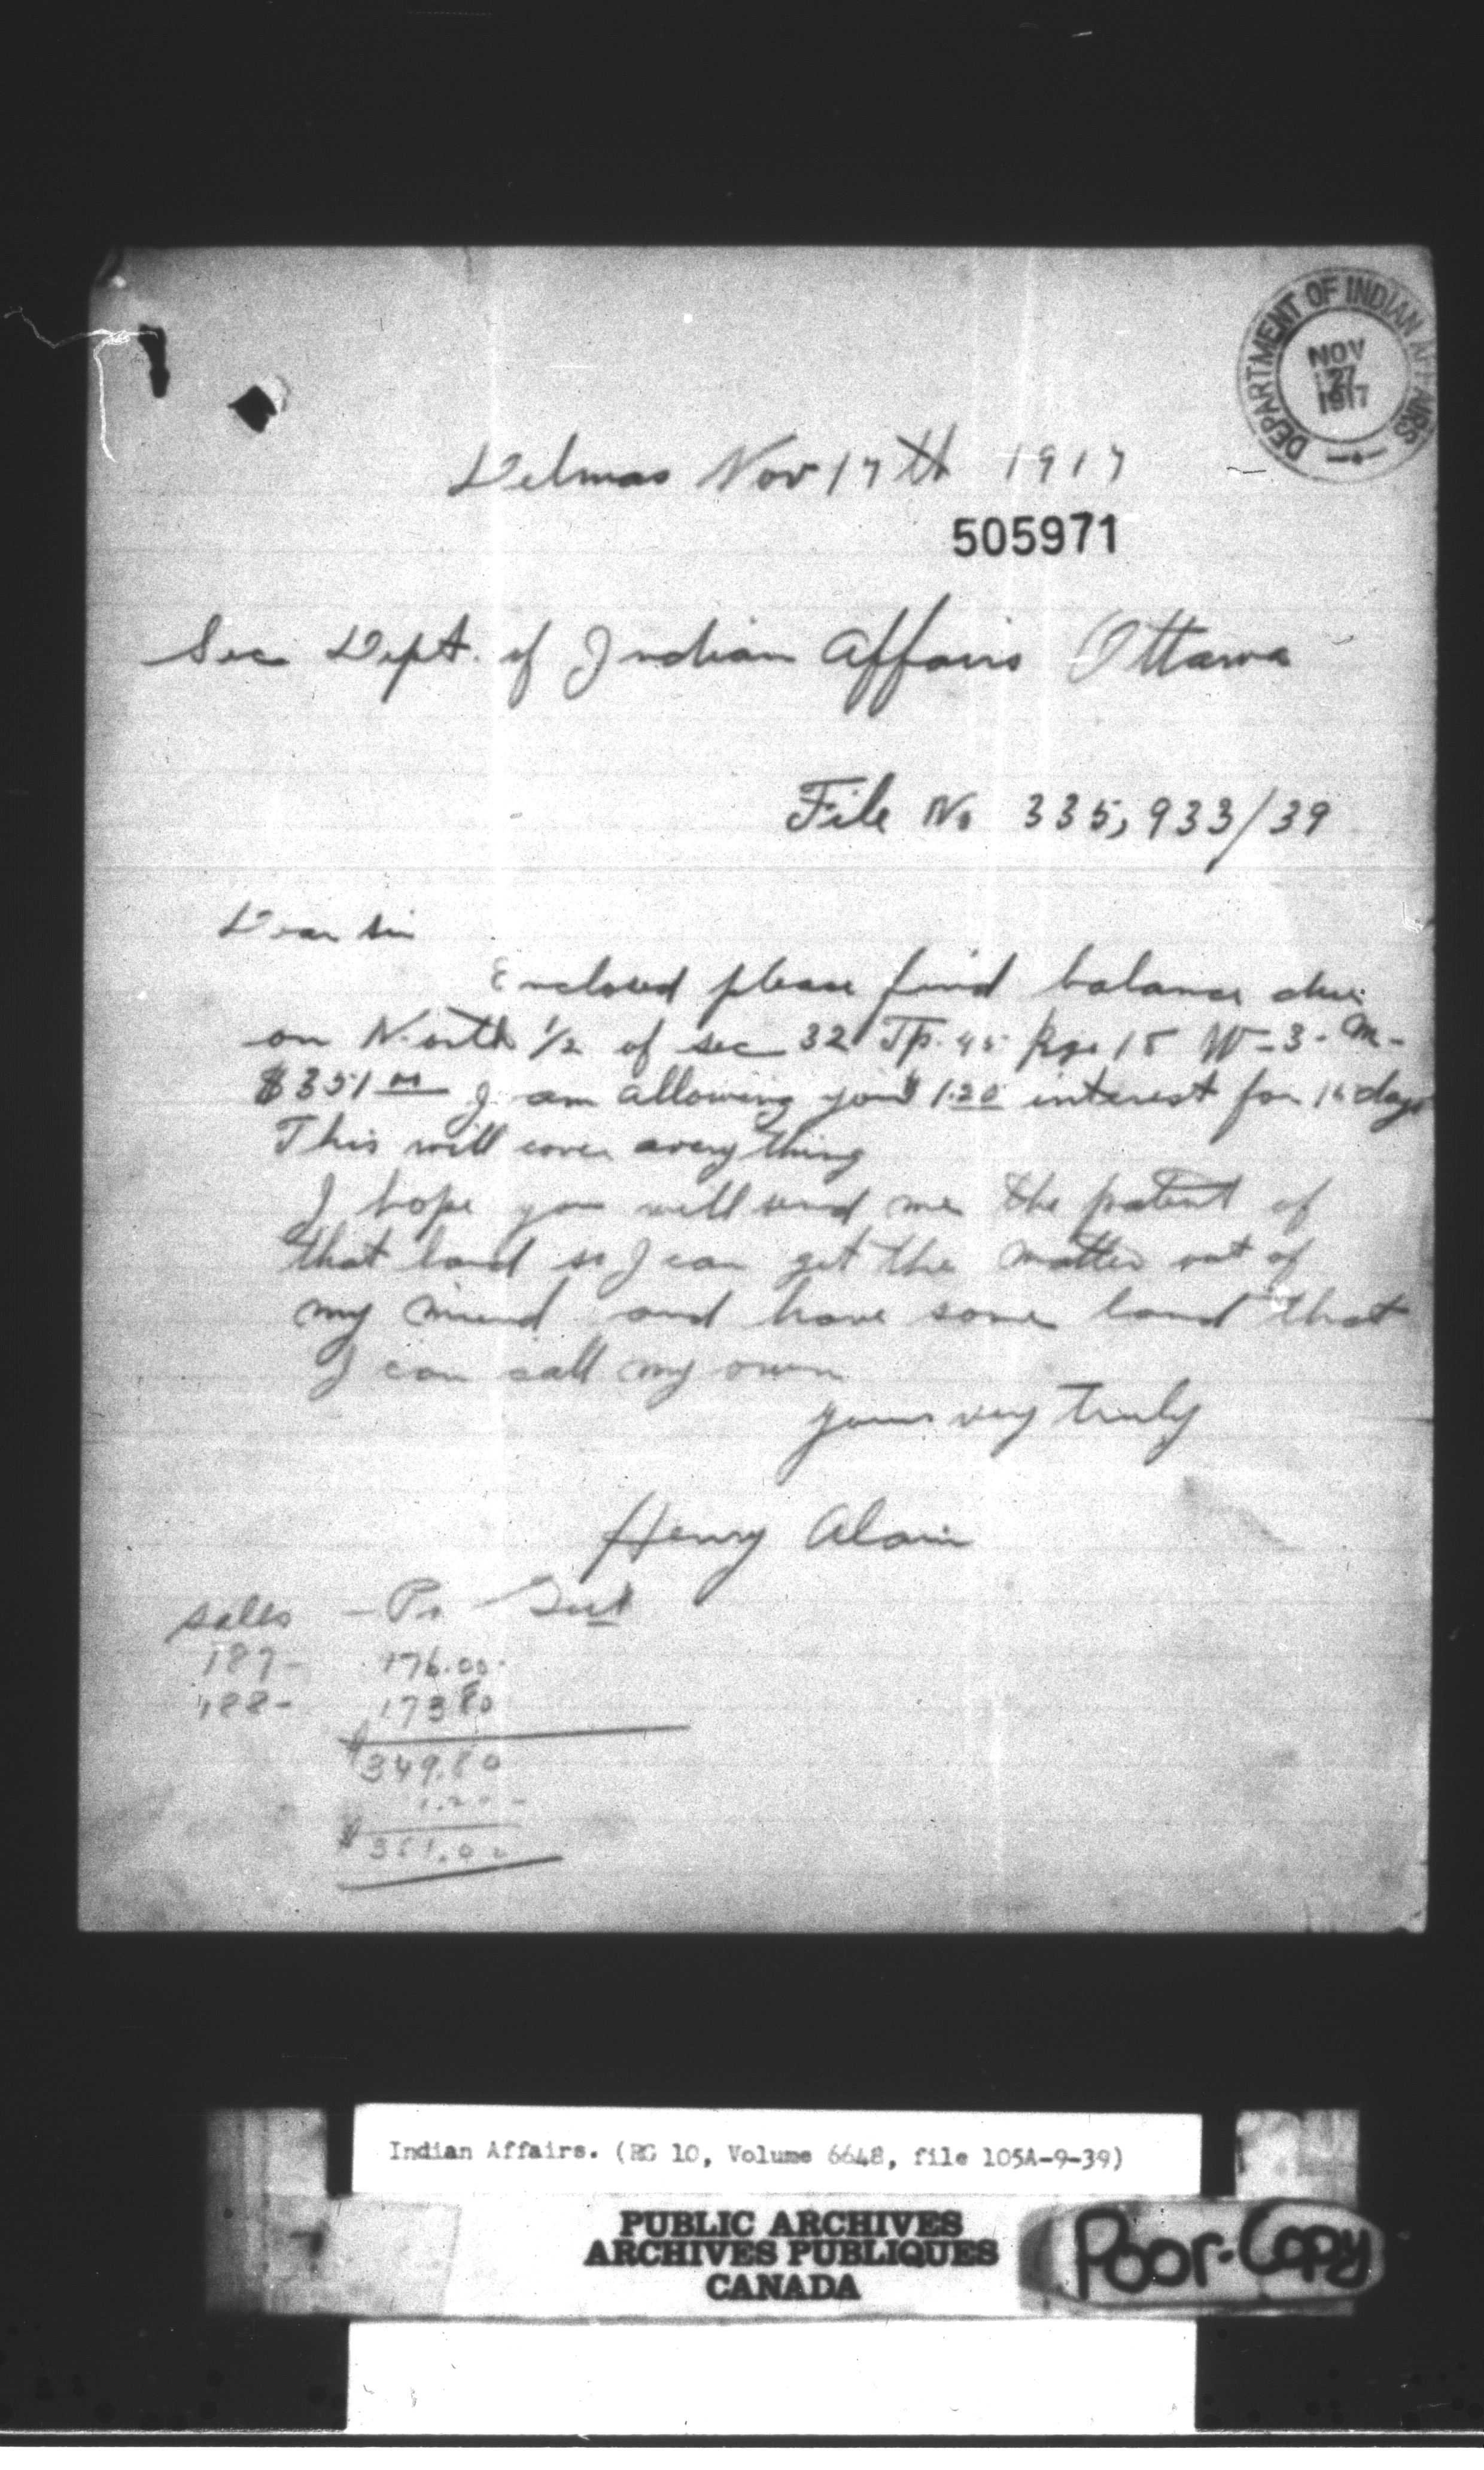 DEPARTMENT OF INDIAN AFFAIRS
NOV
27
1917
Delmas Nov 17th 1917
505971
Sec Dept. of Indian Affairs Ottawa
File No 335,933/39
Dear Sir
Enclosed please find balance due
on North 1/2 of sec 32 Tp. 45 Rge 18 W-3-M-
$351 00 I am allowing you $1.20 interest for days
This will cover everything
I hope you will send me the patent of
that land so I can get the matter out of
my mind and have some land that
I can call my own
yours very truly
Henry Alain
sales - Pr
187- 176.00
188- 173 80
$349.80
1.20
$351.00
Indian Affairs. (RG 10, Volume 6648, file 105A-9-39)
PUBLIC ARCHIVES
ARCHIVES PUBLIQUES
CANADA
Poor-Copy